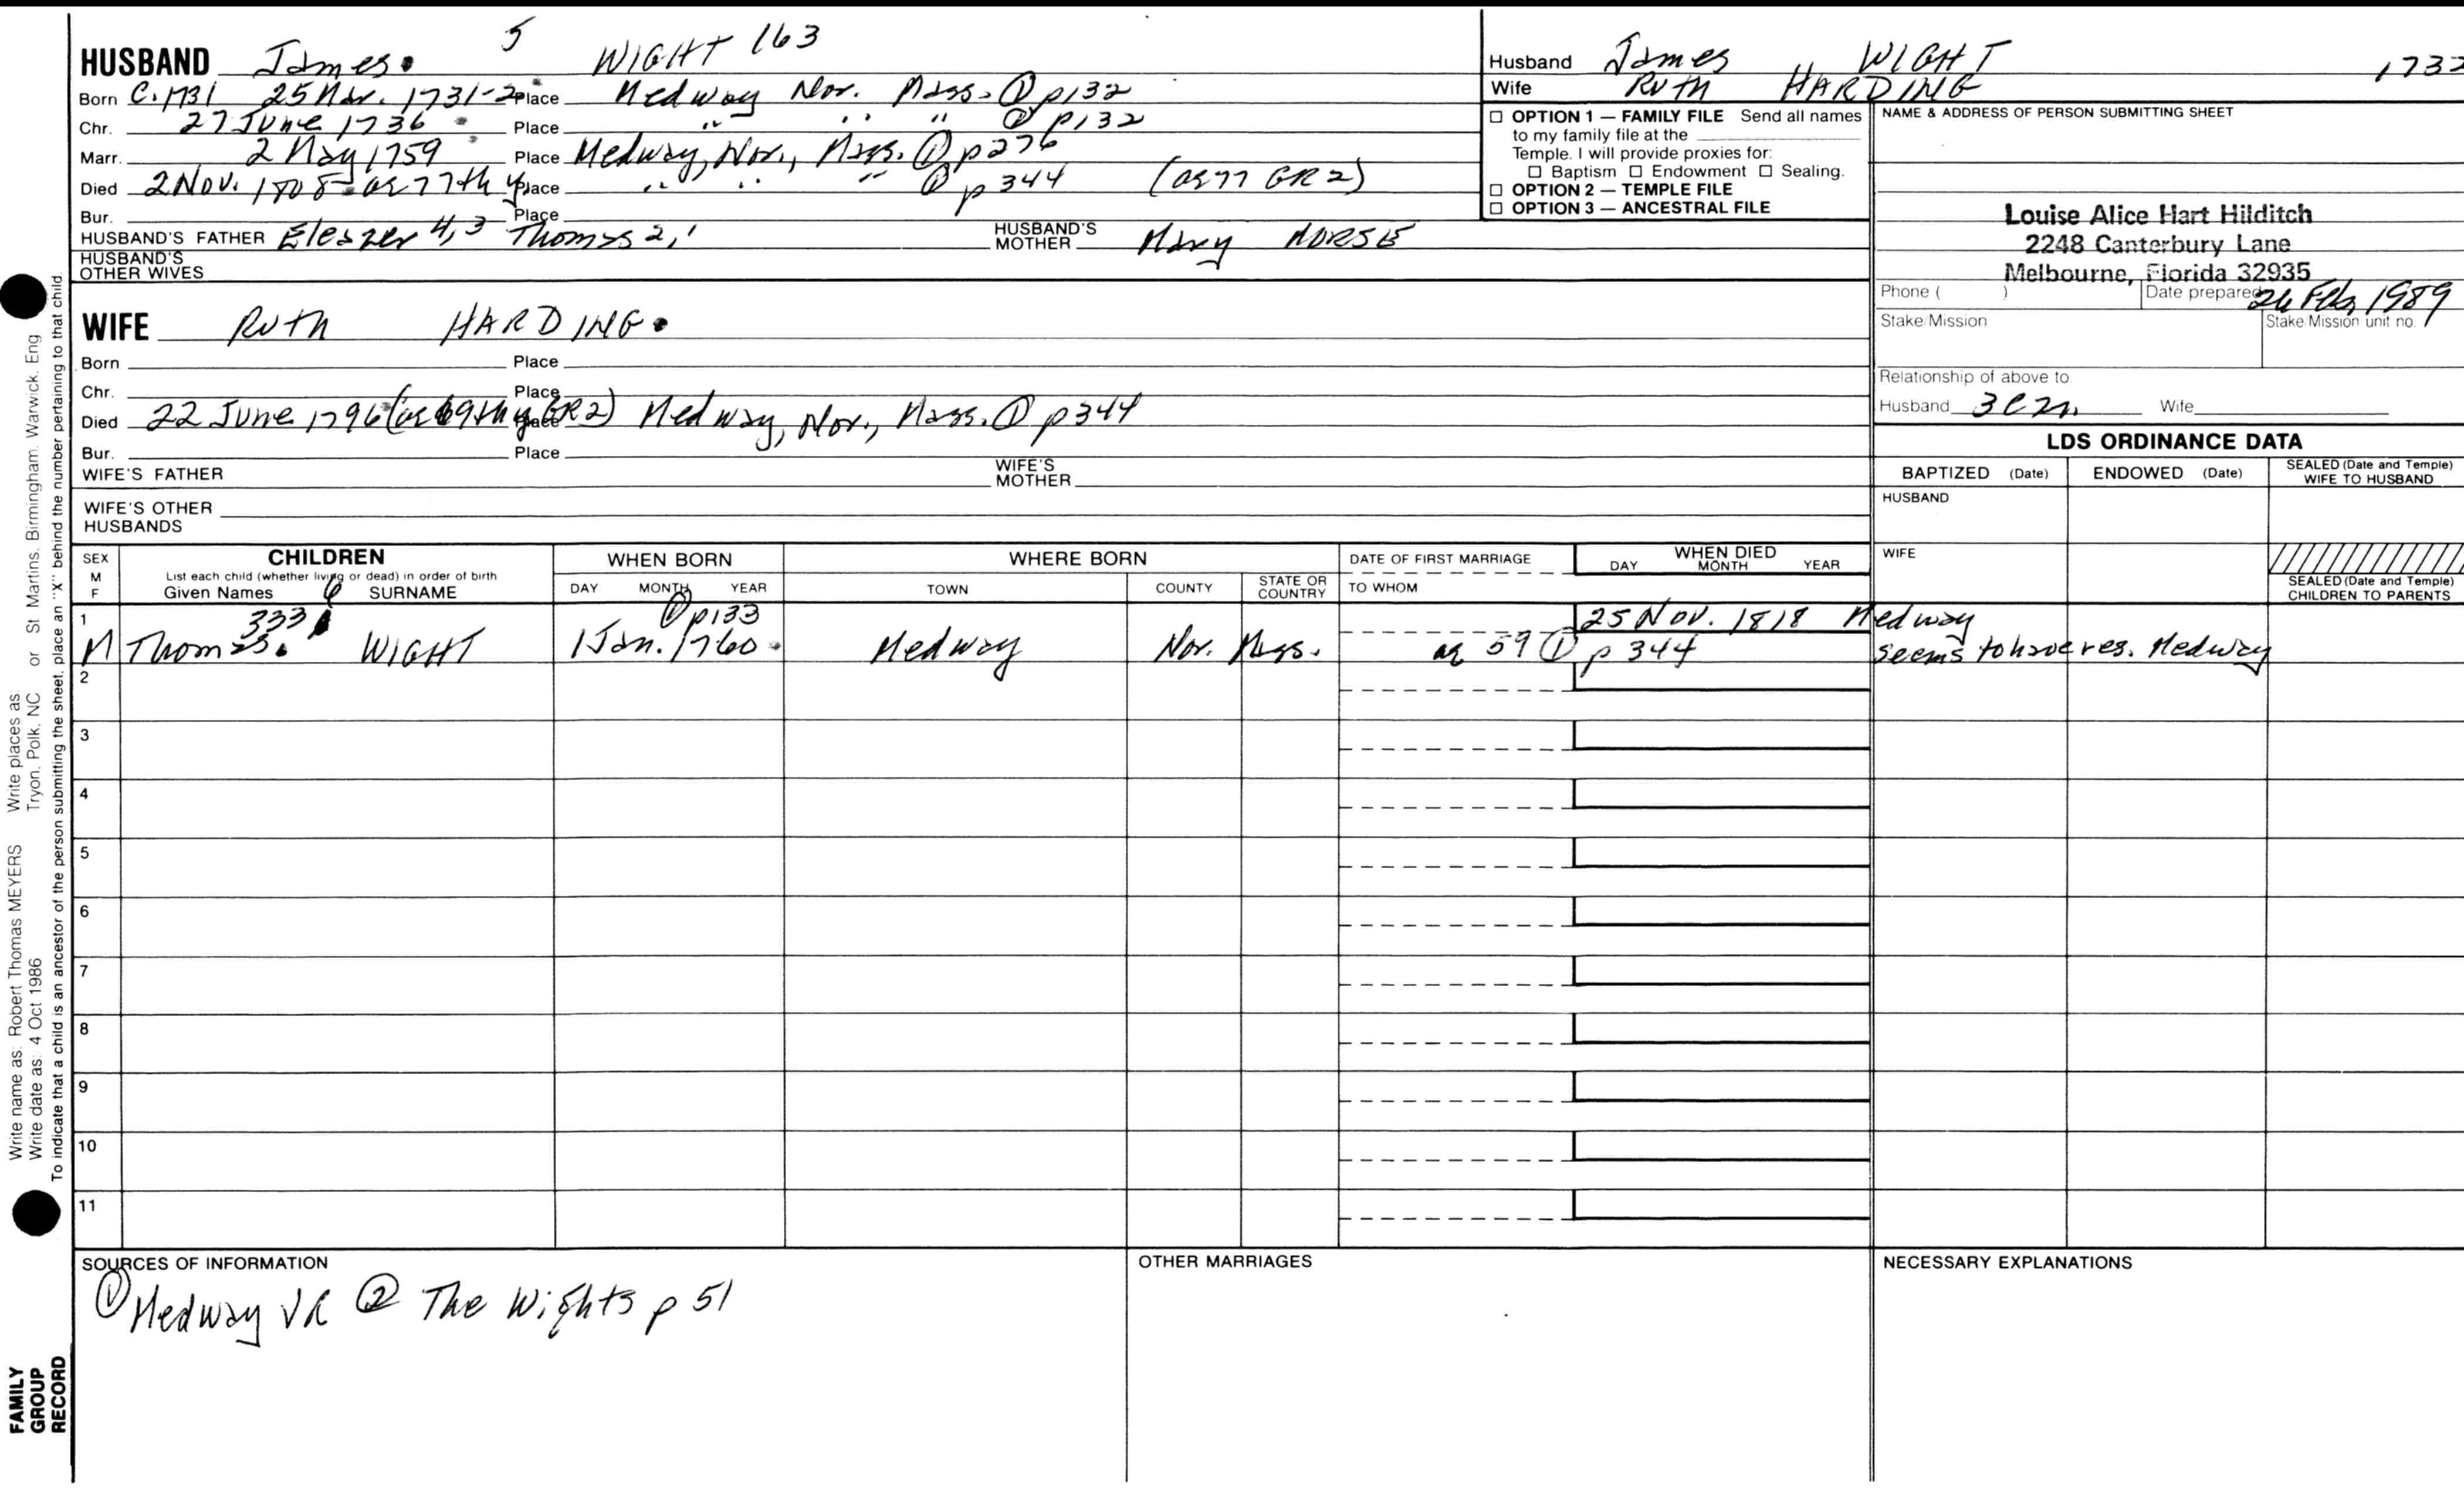 HUSBAND James. 5 WIGHT 163
Born C. 1731 25 Mar. 1731-2 Place Medway Nor. Mass. ① p132
Chr. 27 June 1736 Place " " " ① p132
Marr. 2 May 1759 Place Medway, Nor., Mass. ① p276
Died 2 Nov. 1808 ae 77th y Place " " " ① p344 (ae 77 GR2)
Bur. Place
HUSBAND'S FATHER Eleazer 4,3 Thomas 2,1 HUSBAND'S MOTHER Mary MORSE
HUSBAND'S OTHER WIVES
Husband James WIGHT 1732
Wife Ruth HARDING
☐ OPTION 1 — FAMILY FILE Send all names
to my family file at the
Temple. I will provide proxies for:
☐ Baptism ☐ Endowment ☐ Sealing.
☐ OPTION 2 — TEMPLE FILE
☐ OPTION 3 — ANCESTRAL FILE
NAME & ADDRESS OF PERSON SUBMITTING SHEET
Louise Alice Hart Hilditch
2248 Canterbury Lane
Melbourne, Florida 32935
Phone ( ) Date prepared 26 Feb 1989
Stake/Mission Stake/Mission unit no.
Relationship of above to
Husband 3c7r. Wife
WIFE Ruth HARDING.
Born Place
Chr. Place
Died 22 June 1796 (ae 69th y GR2) Place Medway, Nor., Mass. ① p344
Bur. Place
WIFE'S FATHER WIFE'S MOTHER
WIFE'S OTHER HUSBANDS
LDS ORDINANCE DATA
BAPTIZED (Date) ENDOWED (Date) SEALED (Date and Temple) WIFE TO HUSBAND
HUSBAND
WIFE
SEALED (Date and Temple) CHILDREN TO PARENTS
SEX M F
CHILDREN
List each child (whether living or dead) in order of birth
Given Names 6 SURNAME
WHEN BORN
DAY MONTH YEAR
WHERE BORN
TOWN COUNTY STATE OR COUNTRY
DATE OF FIRST MARRIAGE
TO WHOM
WHEN DIED
DAY MONTH YEAR
1 333 ① p133 25 Nov. 1818 Medway
M Thomas. WIGHT 1 Jan. 1760 Medway Nor. Mass. ae 59 ① p 344 seems to have res. Medway
2
3
4
5
6
7
8
9
10
11
SOURCES OF INFORMATION
① Medway VR ② The Wights p 51
OTHER MARRIAGES
NECESSARY EXPLANATIONS
Write name as: Robert Thomas MEYERS Write places as or St Martins, Birmingham, Warwick, Eng
Write date as: 4 Oct 1986 Tryon, Polk, NC
To indicate that a child is an ancestor of the person submitting the sheet, place an "X" behind the number pertaining to that child.
FAMILY
GROUP
RECORD